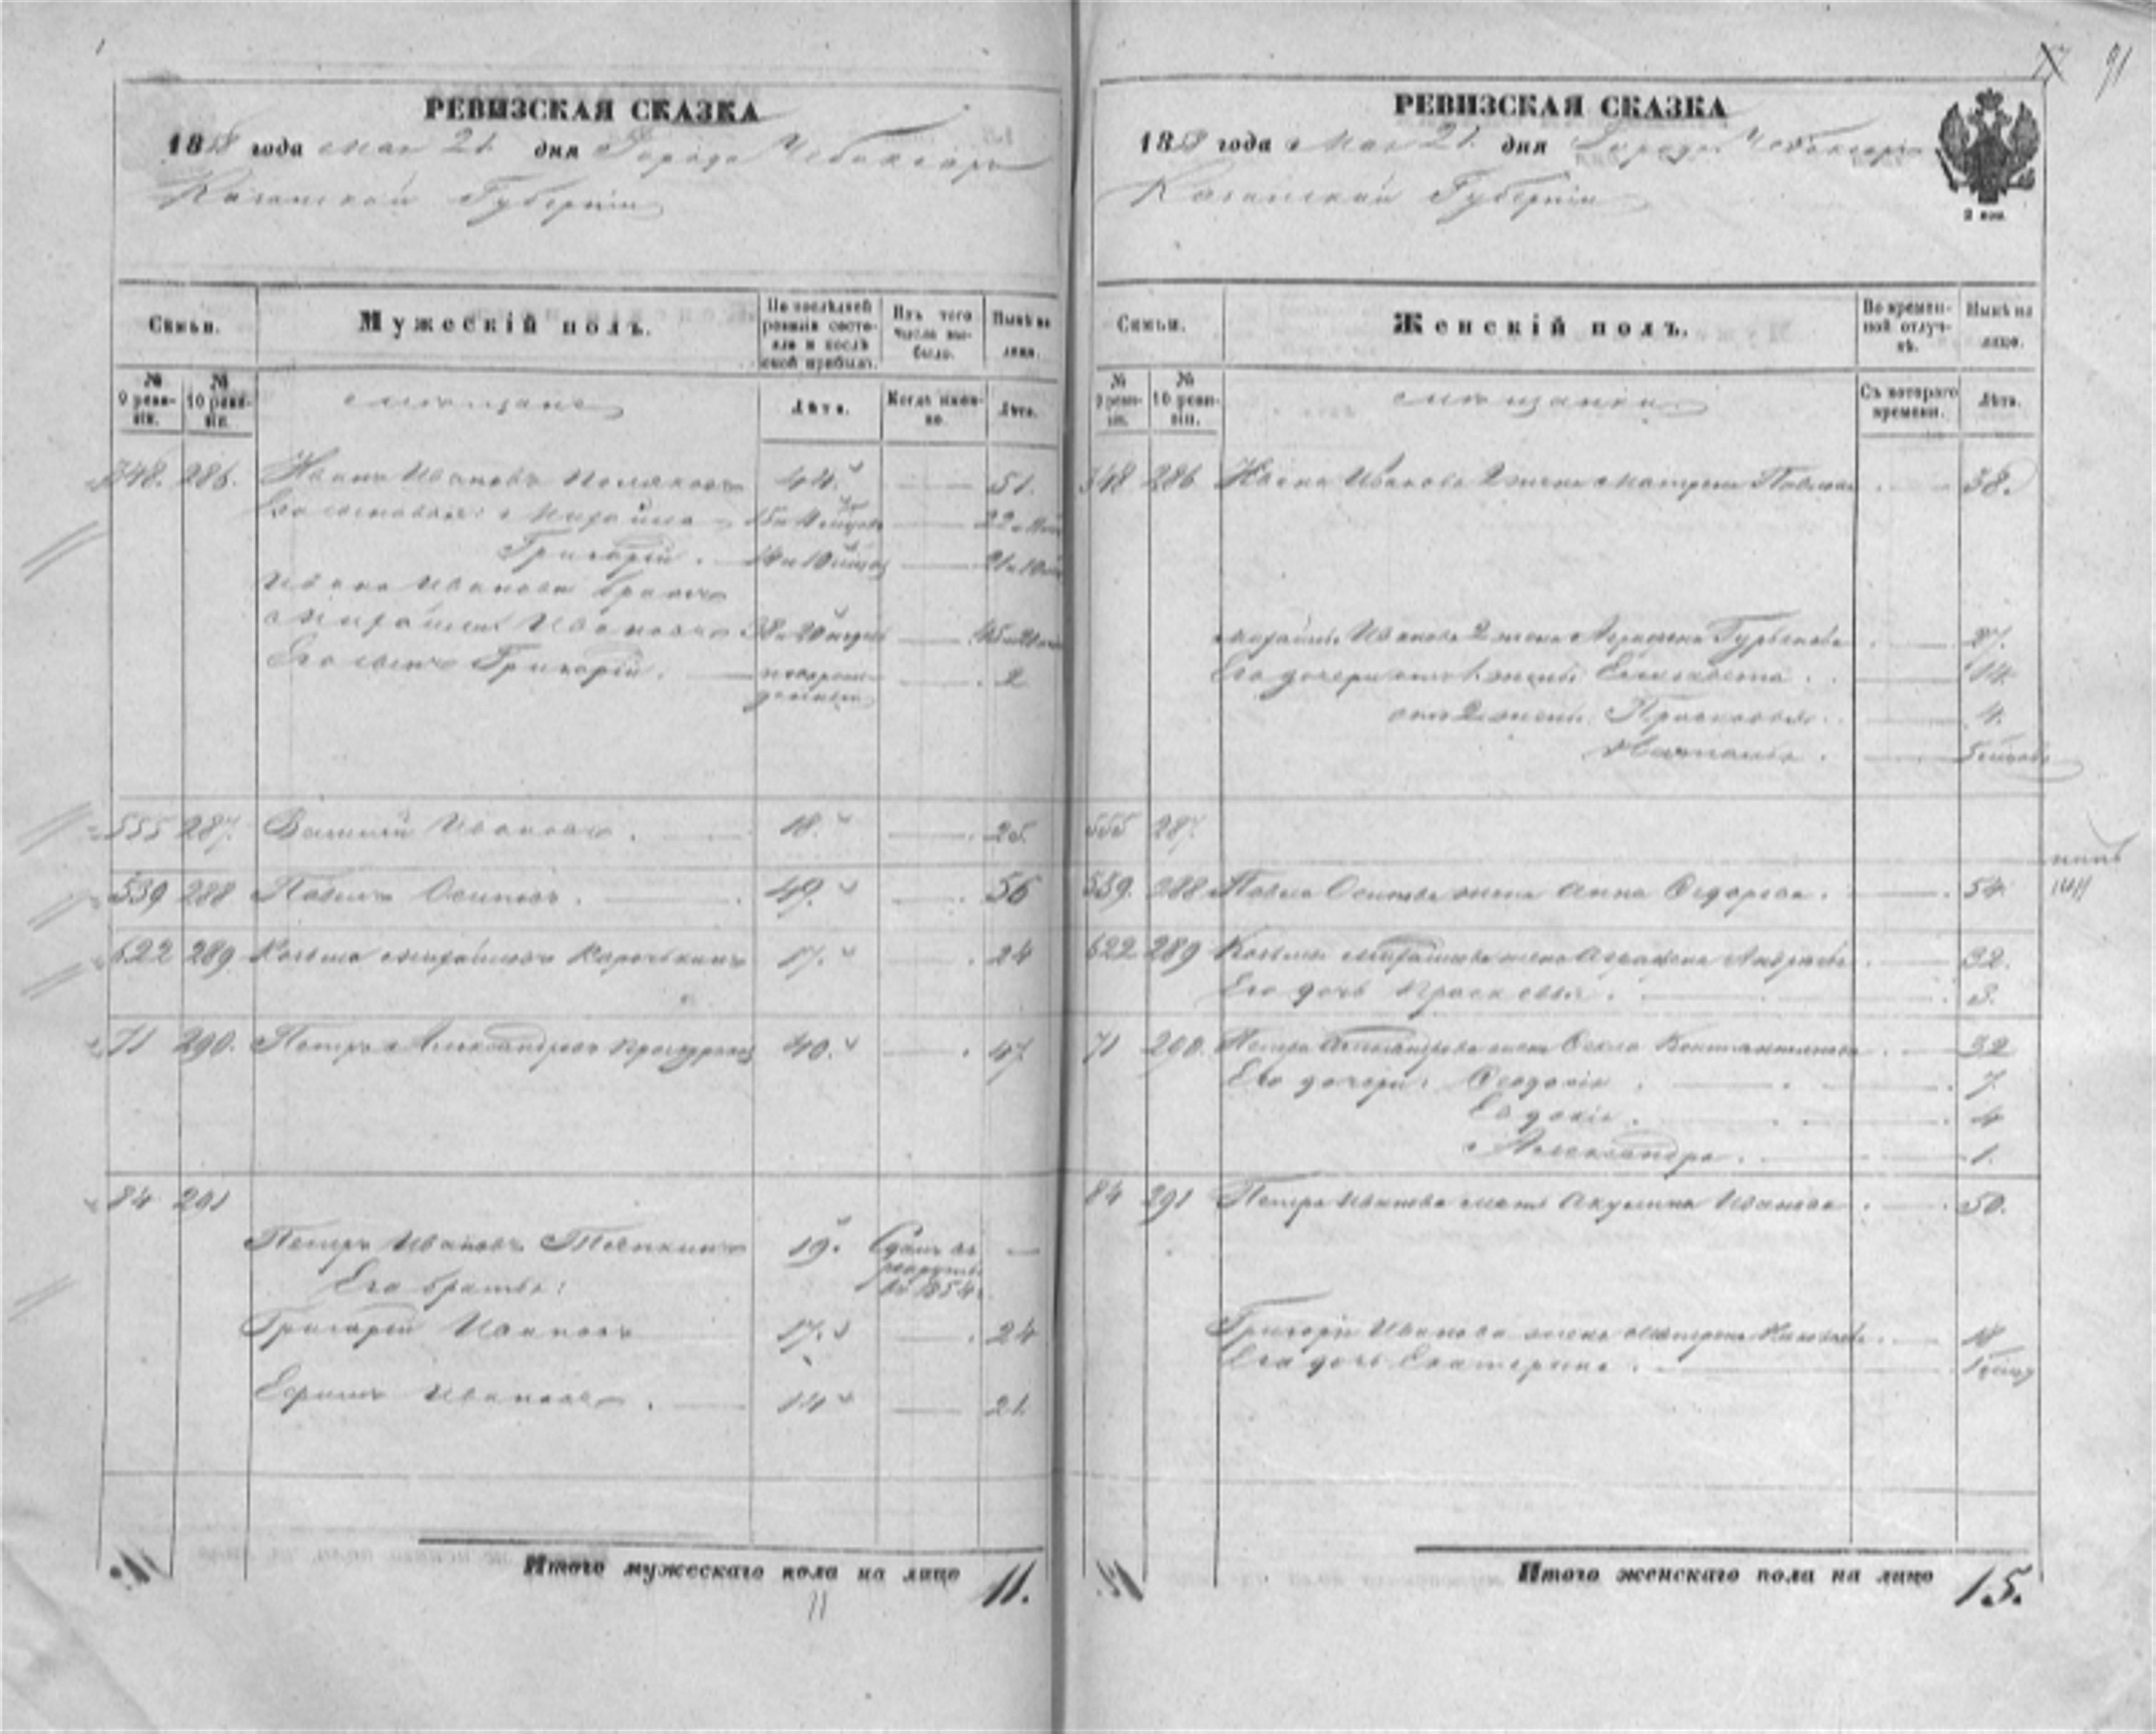 91
РЕВИЗСКАЯ СКАЗКА
1858 года мая 21 дня Города Чебоксаръ
Казанской Губерніи
Семьи.
Мужескій полъ.
По послѣдней ревизіи состояло и послѣ оной прибыло.
Изъ того числа выбыло.
Нынѣ на лицо.
№ 9 ревизіи.
№ 10 ревизіи.
мѣщане
Лѣта.
Когда именно.
Лѣта.
348. 286. Иванъ Ивановъ Поляковъ 44. 51.
Его сыновья: Михайла 15 и 11 22 и 11
Григорій. 14 и 10 21 и 10
Ивана Иванова братъ
Михайла Ивановъ 38 45
Его сынъ Григорій. 2
555 287. Василій Ивановъ. 18. 25.
539 288 Павелъ Осиповъ. 49. 56
622 289 Козьма Михайловъ 17. 24
71 290. Петръ Александровъ 40. 47.
84 291
Петръ Ивановъ 19. Сданъ въ
рекруты
въ 1854
Его братья:
Григорій Ивановъ 17. 24
Ефимъ Ивановъ. 14 21.
Итого мужескаго пола на лицо 11.
11
РЕВИЗСКАЯ СКАЗКА
1858 года Мая 21. дня Города Чебоксаръ
Казанской Губерніи
2 коп
Семьи.
Женскій полъ.
Во временной отлучкѣ.
Нынѣ на лицо.
№ 9 ревизіи.
№ 10 ревизіи.
мѣщанки
Съ котораго времени.
Лѣта.
348 286 Ивана Иванова 2 жена Матрена 38.
Михайлы Иванова 2 жена Аграфена Гурьянова 27.
Его дочери отъ 1. жены Елисавета. 14.
отъ 2 жены Прасковья. 4.
Наталья. 5
555 287.
539. 288 Павла Осипова жена Анна Федорова. 54.
622 289 Козьмы Михайлова жена Аграфена Андреева 32.
Его дочь Прасковья. 3.
71 290. Петра Александрова жена Фекла Константинова 32
Его дочери: Феодосія 7.
Евдокія. 4
Александра. 1.
84 291 Петра Иванова мать Акулина Иванова 50.
Григорія Иванова жена Матрена 18
Его дочь Екатерина.
Итого женскаго пола на лицо 15.